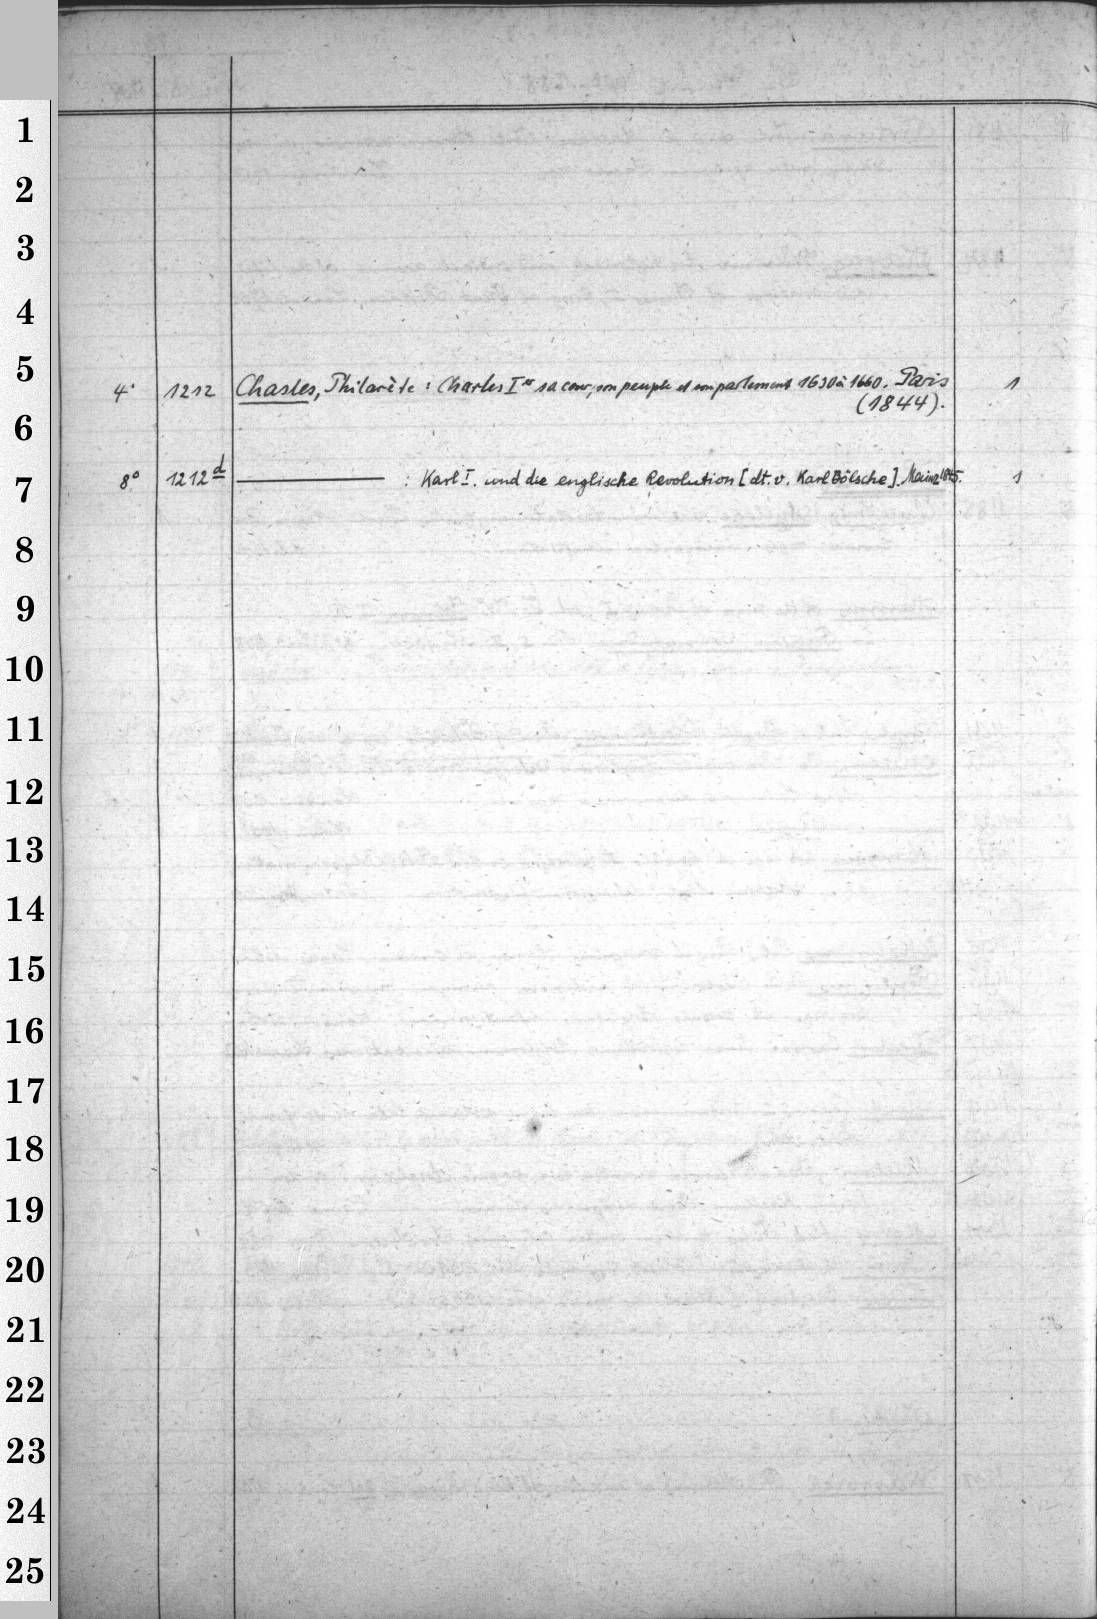 1
2
3
4
5
4° 1212 Chasles, Philarète : Charles Ier sa cour, son peuple et son parlement 1630 à 1660. Paris 1
(1844).
6
7
8° 1212d ——— : Karl I. und die englische Revolution [dt. v. Karl Bölsche]. Mainz 1845. 1
8
9
10
11
12
13
14
15
16
17
18
19
20
21
22
23
24
25